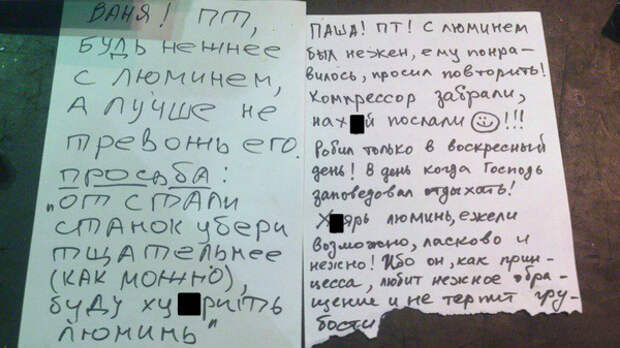 ВАНЯ! ПТ,
БУДЬ НЕЖНЕЕ
С ЛЮМИНЕМ,
А ЛУЧШЕ НЕ
ТРЕВОЖЬ ЕГО.
ПРОСЬБА:
"ОТ СТАЛИ
СТАНОК УБЕРИ
ТЩАТЕЛЬНЕЕ
(КАК МОЖНО),
БУДУ ХУ РИТЬ
ЛЮМИНЬ"
ПАША! ПТ! С ЛЮМИНЕМ
БЫЛ НЕЖЕН, ЕМУ ПОНРА-
ВИЛОСЬ, ПРОСИЛ ПОВТОРИТЬ!
КОМПРЕССОР ЗАБРАЛИ,
НАХ Й ПОСЛАЛИ ☺!!!
РОБИЛ ТОЛЬКО В ВОСКРЕСНЫЙ
ДЕНЬ! В ДЕНЬ КОГДА ГОСПОДЬ
ЗАПОВЕДОВАЛ ОТДЫХАТЬ!
Х ЯРЬ ЛЮМИНЬ, ЕЖЕЛИ
ВОЗМОЖНО, ЛАСКОВО И
НЕЖНО! ИБО ОН, КАК ПРИН-
ЦЕССА, ЛЮБИТ НЕЖНОЕ ОБРА-
ЩЕНИЕ И НЕ ТЕРПИТ ГРУ-
БОСТИ